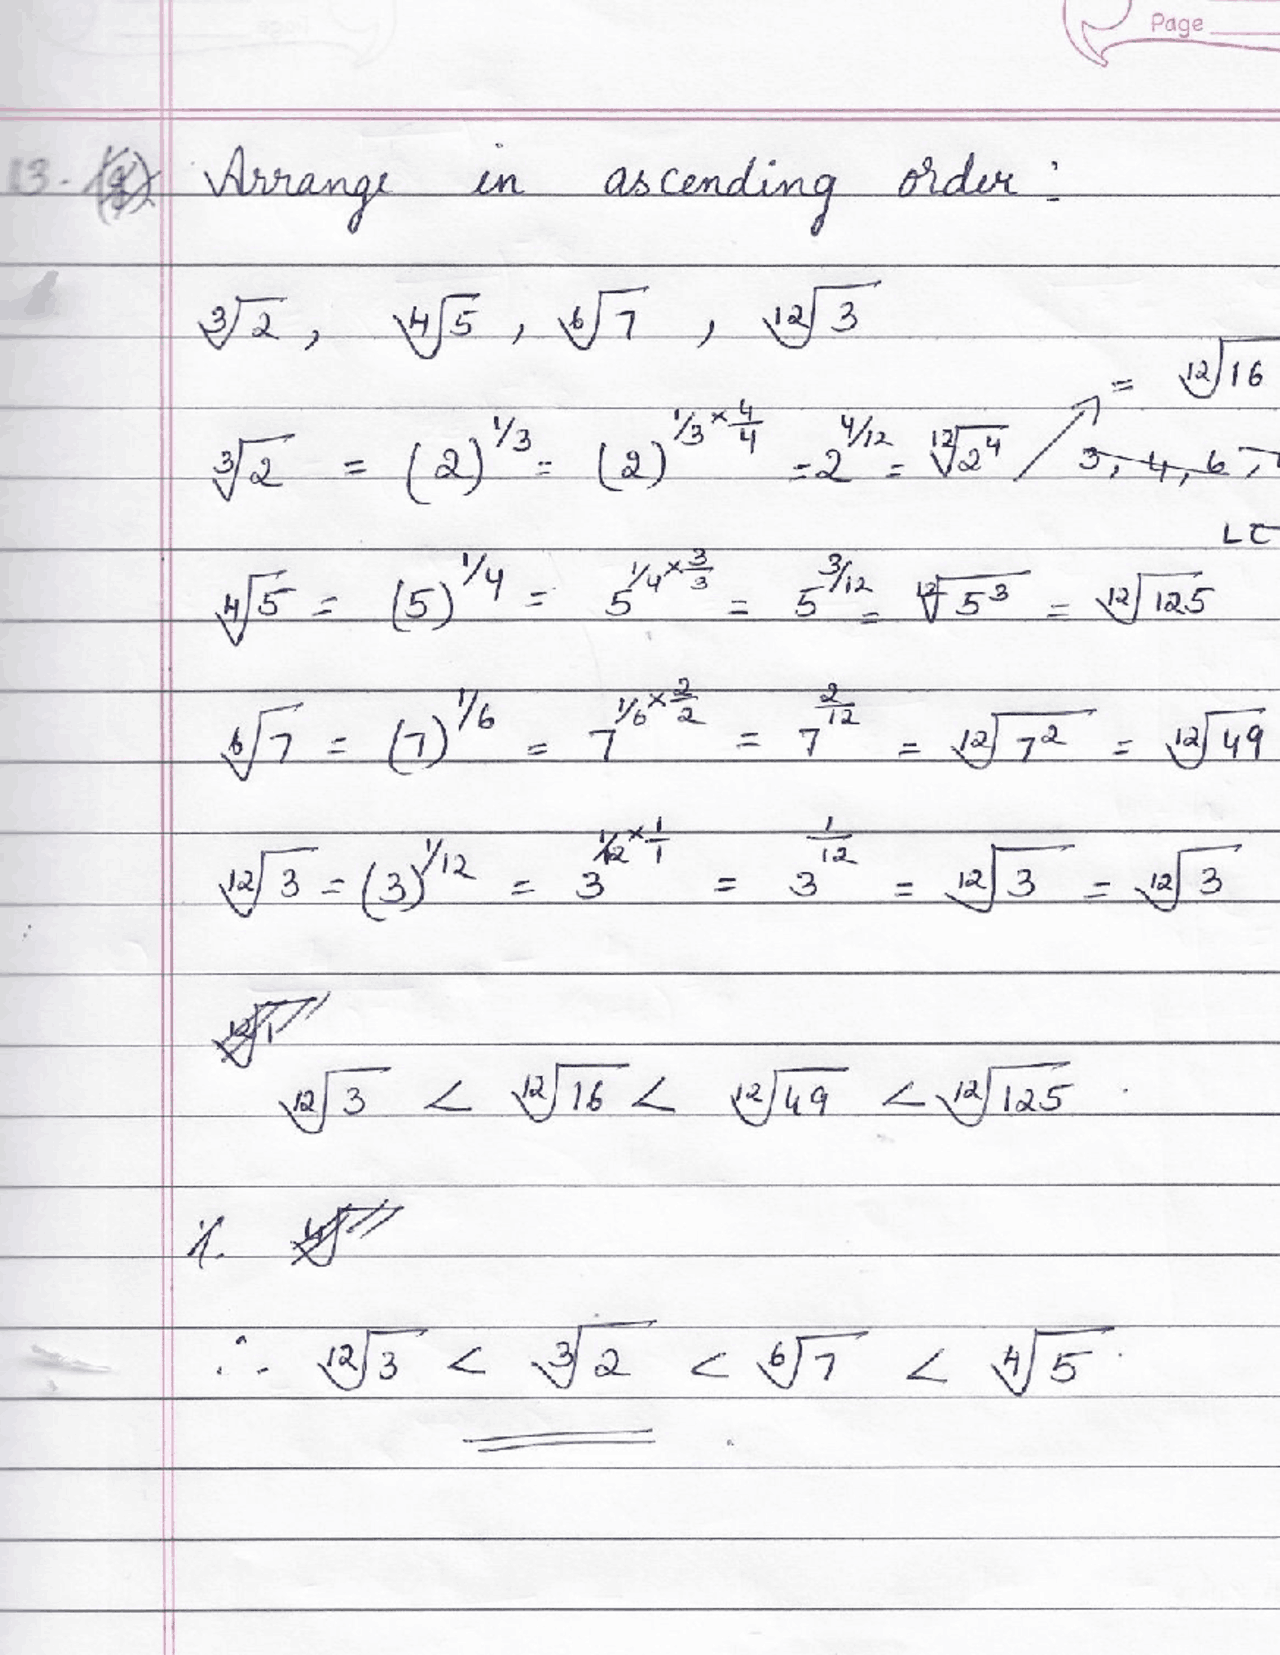 Page
13.
Arrange in ascending order:
∛2, ∜5, ⁶√7, ¹²√3
= ¹²√16
∛2 = (2)^1/3 = (2)^1/3×4/4 = 2^4/12 = ¹²√2⁴ 3, 4, 6,
LC
∜5 = (5)^1/4 = 5^1/4×3/3 = 5^3/12 = ¹²√5³ = ¹²√125
⁶√7 = (7)^1/6 = 7^1/6×2/2 = 7^2/12 = ¹²√7² = ¹²√49
¹²√3 = (3)^1/12 = 3^1/12×1/1 = 3^1/12 = ¹²√3 = ¹²√3
¹²√3 < ¹²√16 < ¹²√49 < ¹²√125
∴ ¹²√3 < ∛2 < ⁶√7 < ∜5